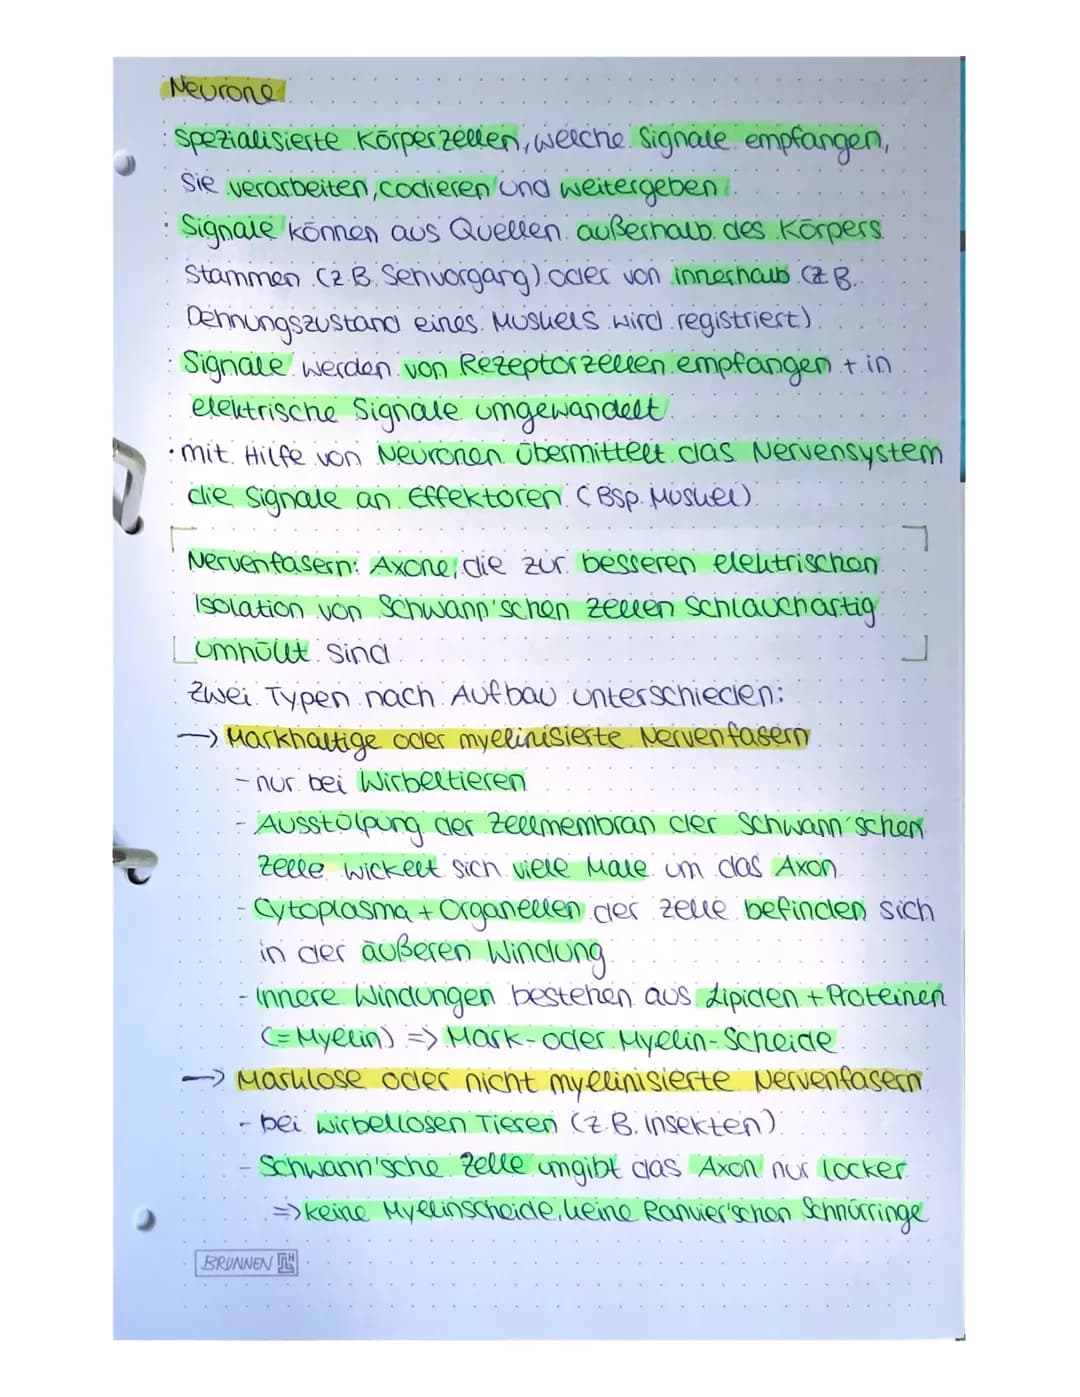 Neurone
· spezialisierte Körperzellen, welche Signale empfangen,
sie verarbeiten, codieren und weitergeben
· Signale können aus Quellen außerhalb des Körpers
stammen (z.B. Sehvorgang) oder von innerhalb (z.B.
Dehnungszustand eines Muskels wird registriert)
· Signale werden von Rezeptorzellen empfangen + in
elektrische Signale umgewandelt
· mit Hilfe von Neuronen übermittelt das Nervensystem
die Signale an Effektoren (Bsp. Muskel)
Nervenfasern: Axone, die zur besseren elektrischen
Isolation von Schwann'schen Zellen schlauchartig
umhüllt sind
Zwei Typen nach Aufbau unterschieden:
→ Markhaltige oder myelinisierte Nervenfasern
- nur bei Wirbeltieren
- Ausstülpung der Zellmembran der Schwann'schen
Zelle wickelt sich viele Male um das Axon
- Cytoplasma + Organellen der Zelle befinden sich
in der äußeren Windung
- innere Windungen bestehen aus Lipiden + Proteinen
(= Myelin) => Mark- oder Myelin-Scheide
→ Marklose oder nicht myelinisierte Nervenfasern
- bei wirbellosen Tieren (z.B. Insekten)
- Schwann'sche Zelle umgibt das Axon nur locker
=> keine Myelinscheide, keine Ranvier'schen Schnürringe
BRUNNEN